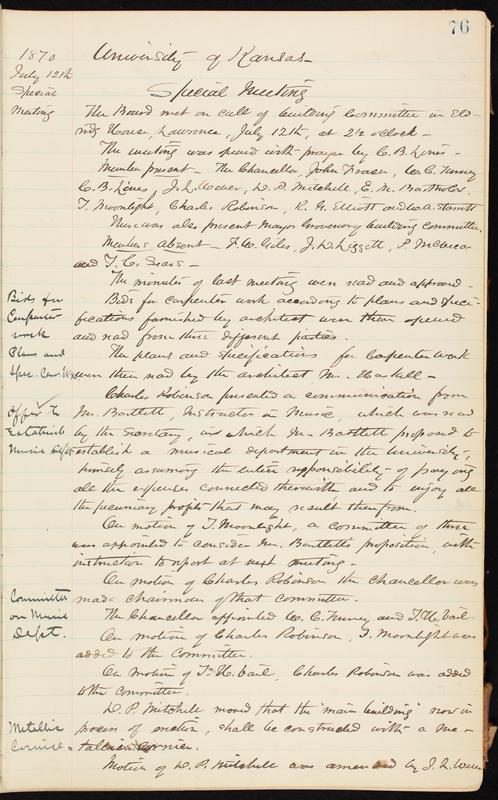 76
1870 University of Kansas —
July 12th
Special Special Meeting
Meeting The Board met on call of building Committee in Eld-
ridge House, Lawrence, July 12th, at 2½ o'clock —
The meeting was opened with prayer by C. B. Lines —
Members present — The Chancellor, John Fraser, W. C. Tenney
C. B. Lines, J. L. Wever, D. P. Mitchell, E. M. Bartholow
T. Moonlight, Charles Robinson, R. G. Elliott and W. A. Starrett
There was also present Mayor Grovenor of building committee
Members absent — F. W. Giles, J. D. Liggett, P. McVicar
and T. C. Sears —
The minutes of last meeting were read and approved —
Bids for Bids for carpenter work according to plans and speci-
Carpenter fications furnished by architect were then opened
work and read from three different parties.
Plans and The plans and specifications for Carpenter work
Spec. Car. Wk were then read by the architect Mr. Haskell —
Charles Robinson presented a communication from
Offer to Mr. Bartlett, Instructor in Music, which was read
Establish by the Secretary, in which Mr. Bartlett proposed to
Music Dept establish a musical department in the University,
himself assuming the entire responsibility of paying
all the expenses connected therewith, and to enjoy all
the pecuniary profits that may result therefrom.
On motion of T. Moonlight, a committee of three
was appointed to consider Mr. Bartlett's proposition, with
instruction to report at next meeting —
On motion of Charles Robinson the Chancellor was
Committee made chairman of that committee.
on Music The Chancellor appointed W. C. Tenney and T. H. Vail.
Dept. On motion of Charles Robinson, T. Moonlight was
added to the Committee.
On motion of T. H. Vail, Charles Robinson was added
to the committee.
D. P. Mitchell moved that the "main building" now in
Metallic process of erection, shall be constructed with a me-
Cornice — tallic cornice.
Motion of D. P. Mitchell was amended by J. L. Wever